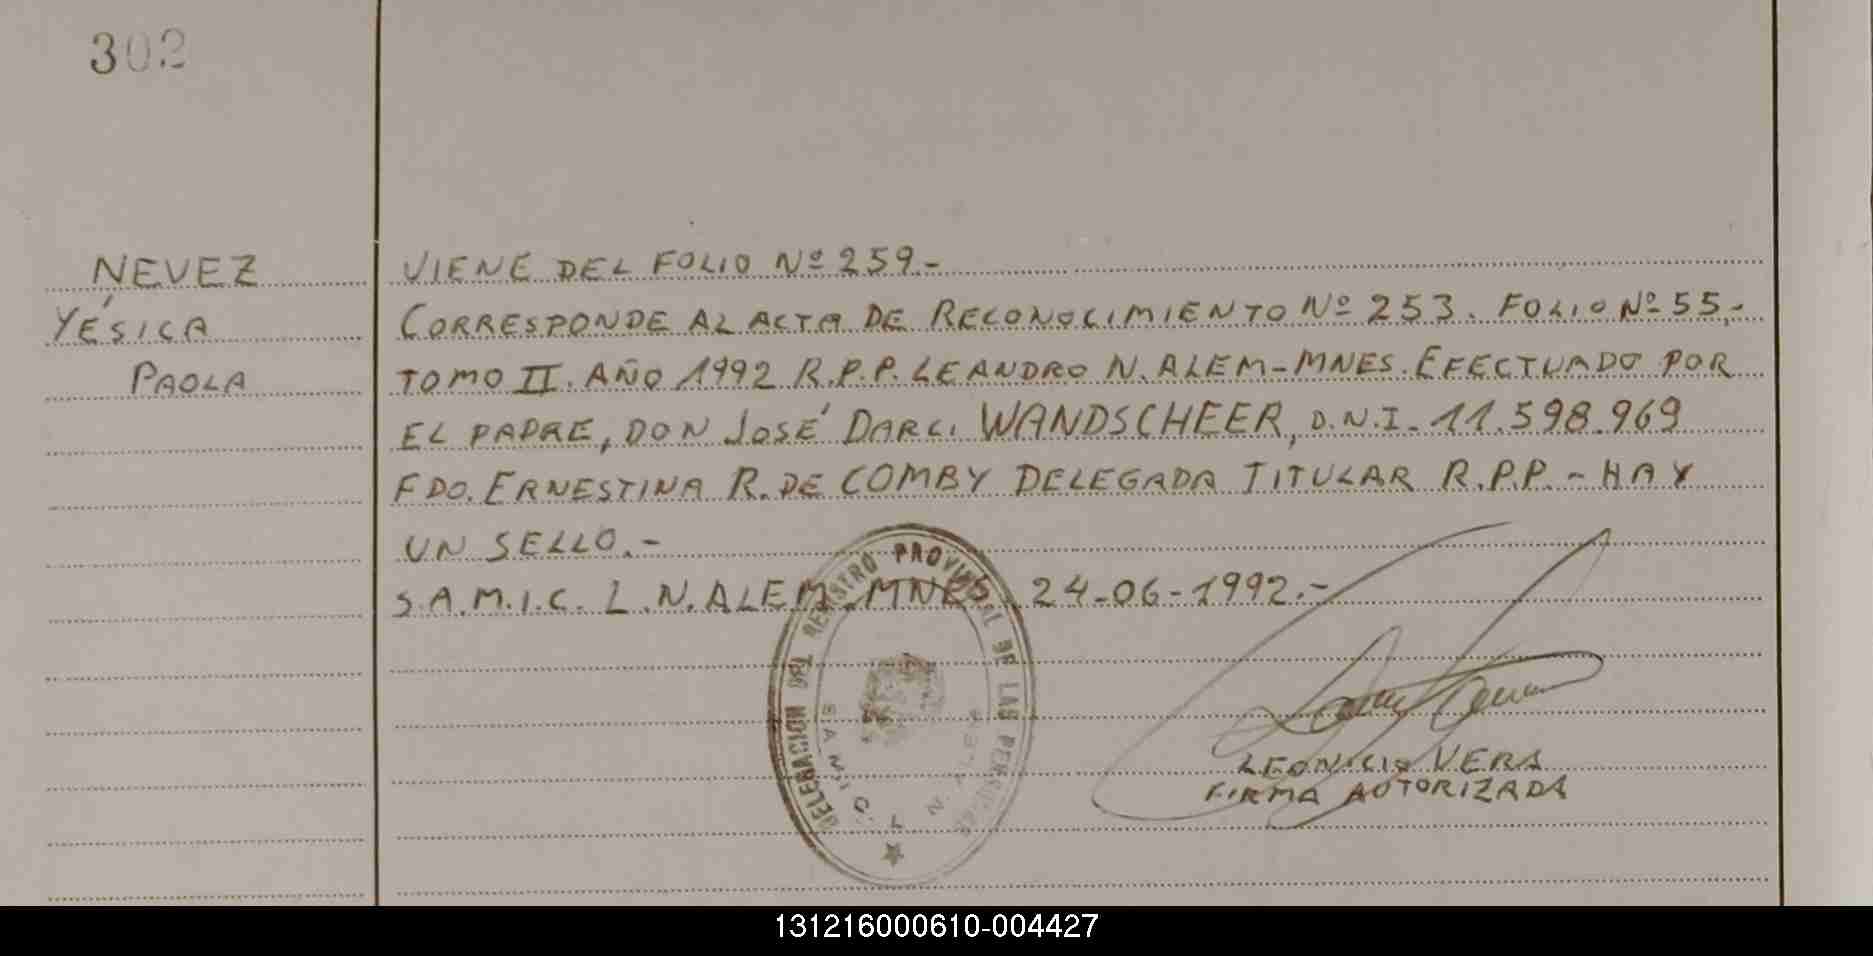 302
NEVEZ
YÉSICA
PAOLA
VIENE DEL FOLIO Nº 259.-
CORRESPONDE AL ACTA DE RECONOCIMIENTO Nº 253. FOLIO Nº 55,-
TOMO II. AÑO 1992 R.P.P. LEANDRO N. ALEM-MNES. EFECTUADO POR
EL PADRE, DON JOSÉ DARCI WANDSCHEER, D.N.I. 11.598.969
FDO. ERNESTINA R. DE COMBY DELEGADA TITULAR R.P.P. - HAY
UN SELLO.-
S.A.M.I.C. L.N. ALEM. MNES, 24-06-1992.-
DELEGACION DEL REGISTRO PROVINCIAL DE LAS PERSONAS
S A M I C. L N. ALEM
LEONICIO VERA
FIRMA AUTORIZADA
131216000610-004427